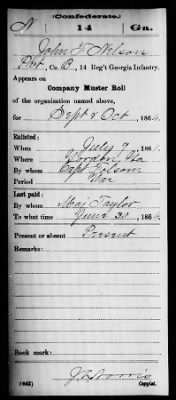 (Confederate.)
N 14 Ga.
John T. Nelson
Pvt, Co. B, 14 Reg't Georgia Infantry.
Appears on
Company Muster Roll
of the organization named above,
for Sept & Oct, 1864.
Enlisted:
When July 9, 1861.
Where Ga
By whom Capt
Period War
Last paid:
By whom Maj Taylor
To what time June 30, 1864.
Present or absent Present
Remarks:
Book mark:
(642) Copyist.